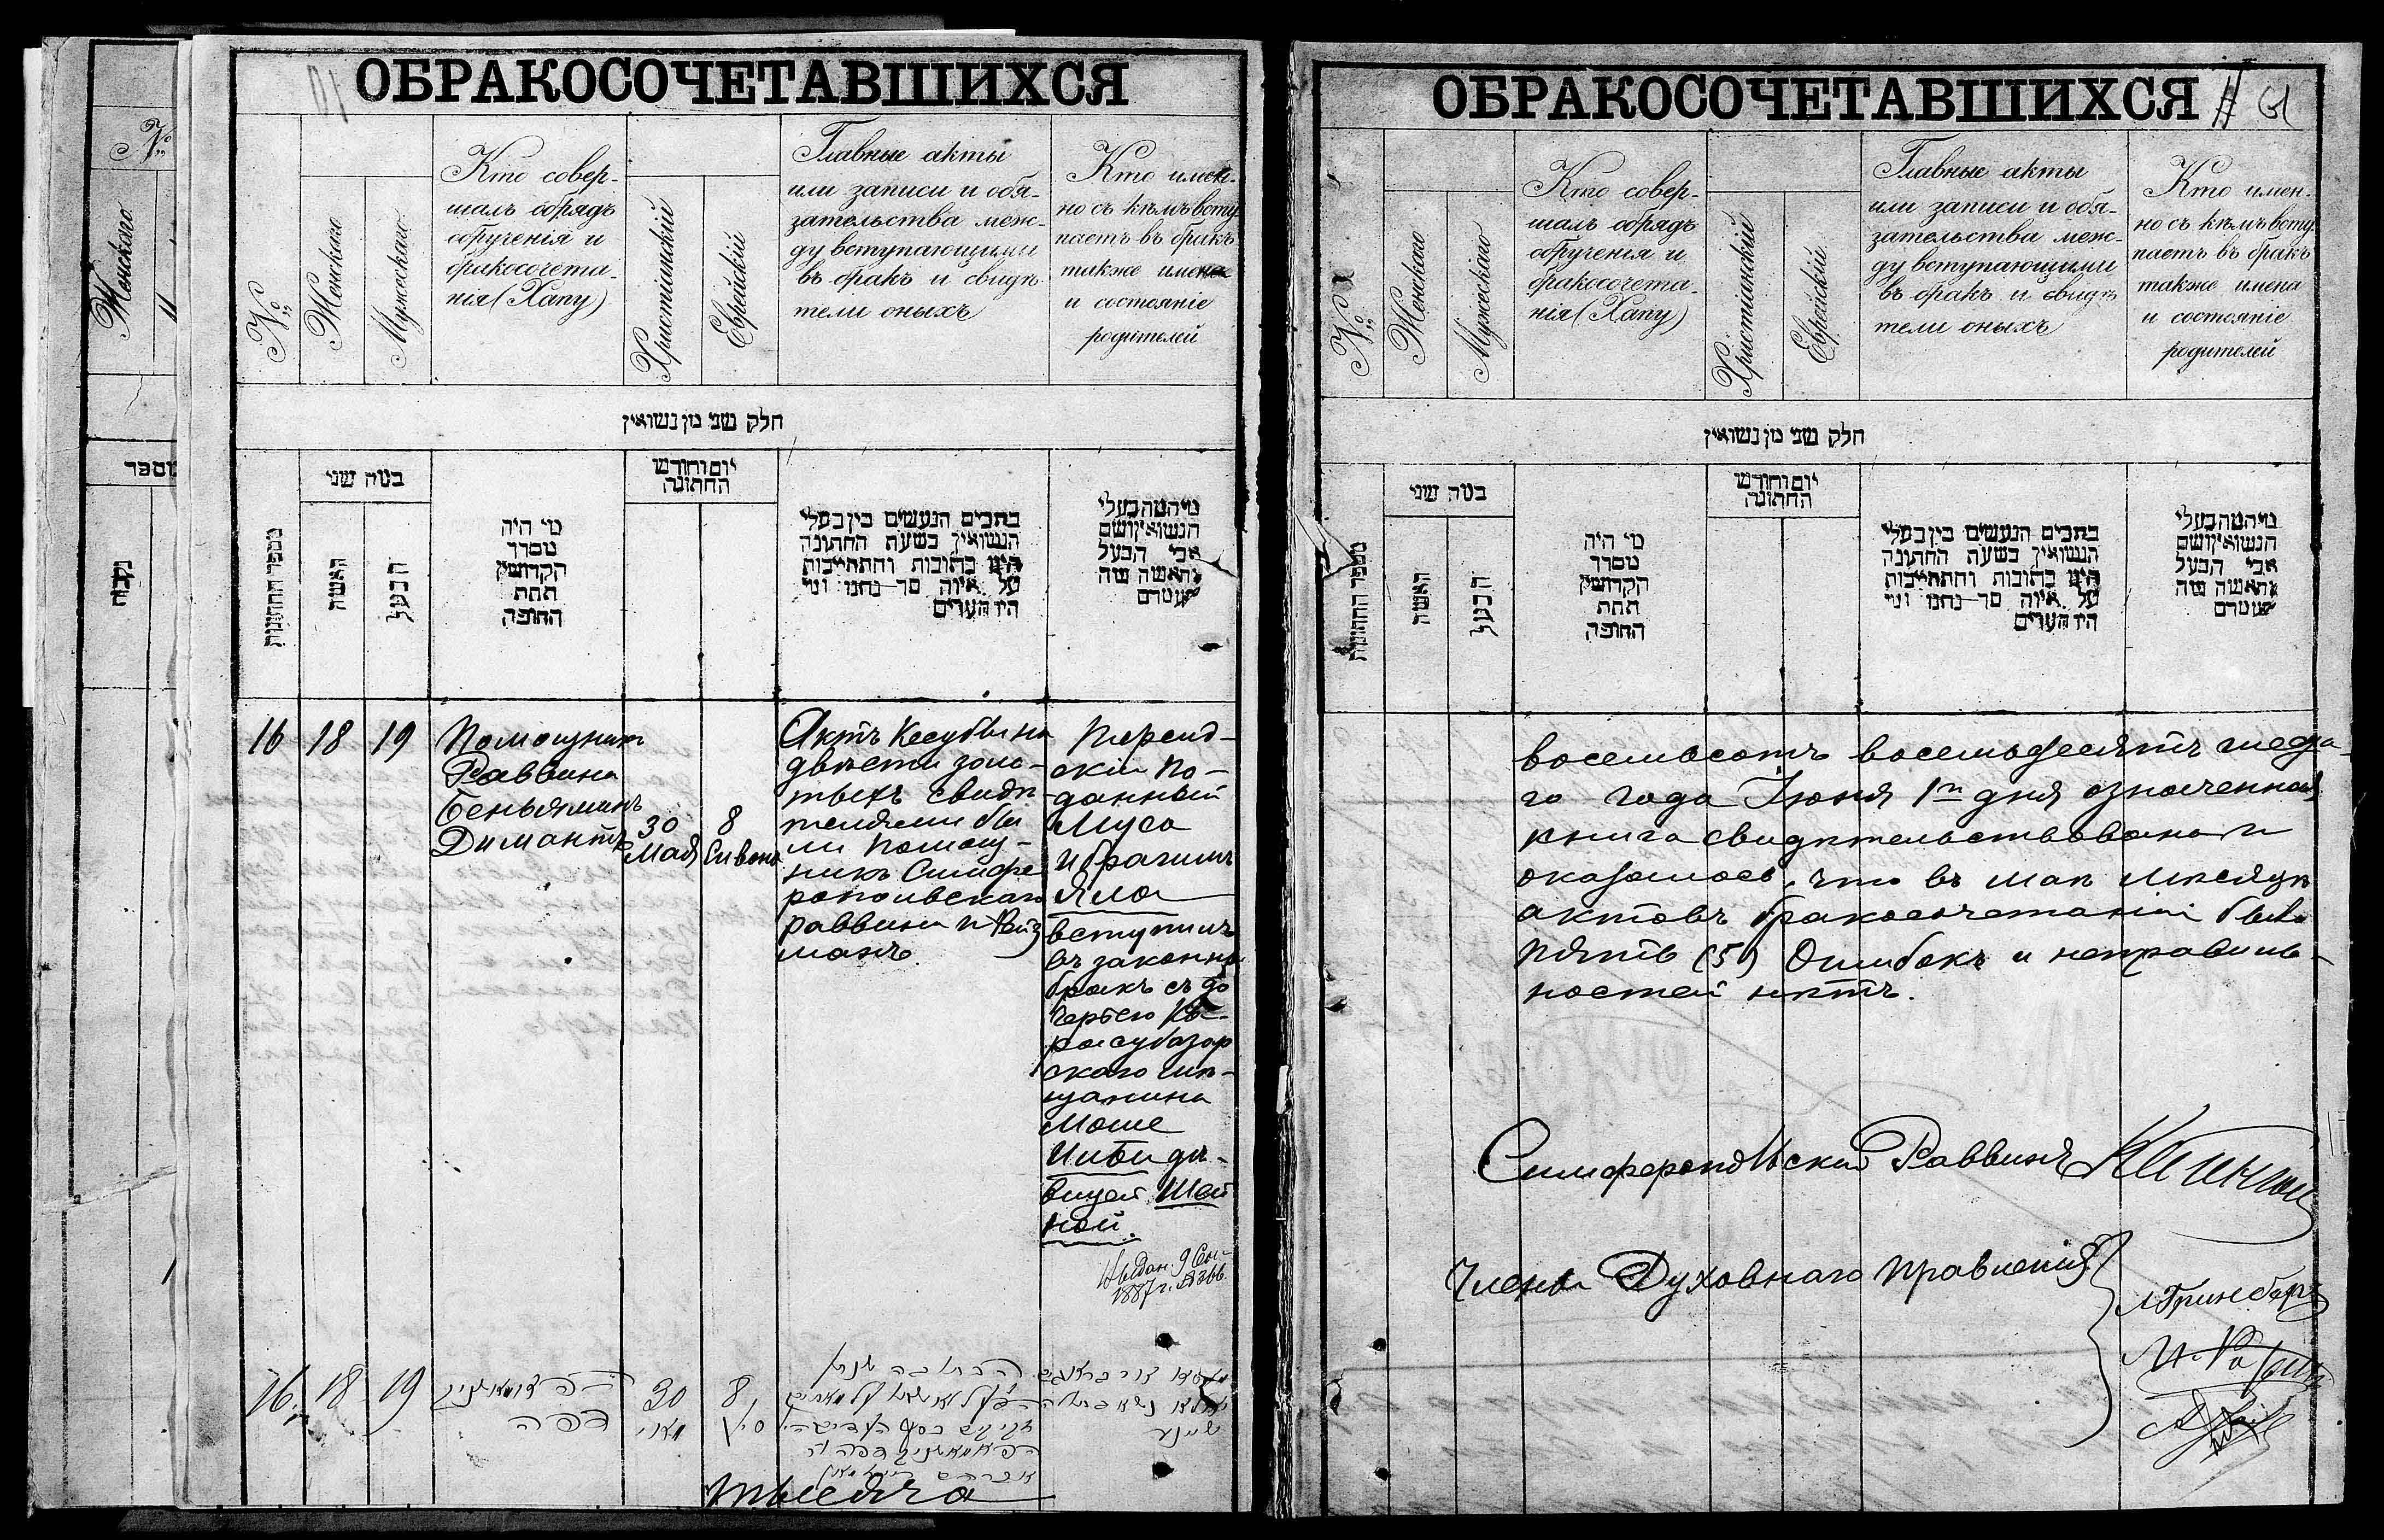 №
Женскаго
מספר
נקבות
ОБРАКОСОЧЕТАВШИХСЯ
№
Женскаго
Мужескаго
Кто совер-
шалъ обрядъ
обрученія и
бракосочета-
нія (Хапу)
Христіанскій
Еврейскій
Главные акты
или записи и обя-
зательства меж-
ду вступающими
въ бракъ и свидѣ-
тели оныхъ
Кто имен-
но съ кѣмъ всту
паетъ въ бракъ
также имена
и состояніе
родителей
חלק שני מן נשואין
מספר החתונות
במה שני
האשה
הבעל
מי היה
מסדר
הקדושין
תחת
החופה
יום וחודש
החתונה
בתבים הנעשים בין בעלי
הנשואין בשעת החתונה
היו כתובות וחתחייבות
על איזה סך נתנו ומי
היו העדים
מי המה בעלי
הנשואין ושם
אבי הבעל
והאשה מה
מעמדם
16
18
19
Помощникъ
Раввина
Беньяминъ
Димантъ
30
Мая
8
Сивона
Актъ Кесубы на
двѣсти золо-
тыхъ свидѣ-
телями бы
ли Помощ-
никъ Симфе
ропольскаго
раввина и Рейз
манъ
Персид-
скій По-
данный
Муса
Ибрагимъ
Яло
вступилъ
въ законный
бракъ съ до
черью Ка-
расубазар
скаго мѣ-
щанина
Моше
дѣ-
вицей Шей
ной.
Выдан. 9 Сен-
1887 г. № 366
16
18
19
30
מאי
8
סיון
тысяча
ОБРАКОСОЧЕТАВШИХСЯ
61
№
Женскаго
Мужескаго
Кто совер-
шалъ обрядъ
обрученія и
бракосочета-
нія (Хапу)
Христіанскій
Еврейскій
Главные акты
или записи и обя-
зательства меж-
ду вступающими
въ бракъ и свидѣ
тели оныхъ
Кто имен-
но съ кѣмъ всту.
паетъ въ бракъ
также имена
и состояніе
родителей
חלק שני מן נשואין
מספר החתונות
במה שני
האשה
הבעל
מי היה
מסדר
הקדושין
תחת
החופה
יום וחודש
החתונה
בתבים הנעשים בין בעלי
הנשואין בשעת החתונה
היו כתובות וחתחייבות
על איזה סך נתנו ומי
היו העדים
מי המה בעלי
הנשואין ושם
אבי הבעל
והאשה מה
מעמדם
восемьсотъ восемьдесятъ шеста-
го года Іюня 1го дня означенная
книга свидѣтельствована и
оказалось, что въ маѣ мѣсяцѣ
актовъ бракосочетаній было
пять (5) Ошибокъ и неправиль-
ностей нѣтъ.
Симферопольскій Раввинъ
Члены Духовнаго правленія
Л Гринберъ